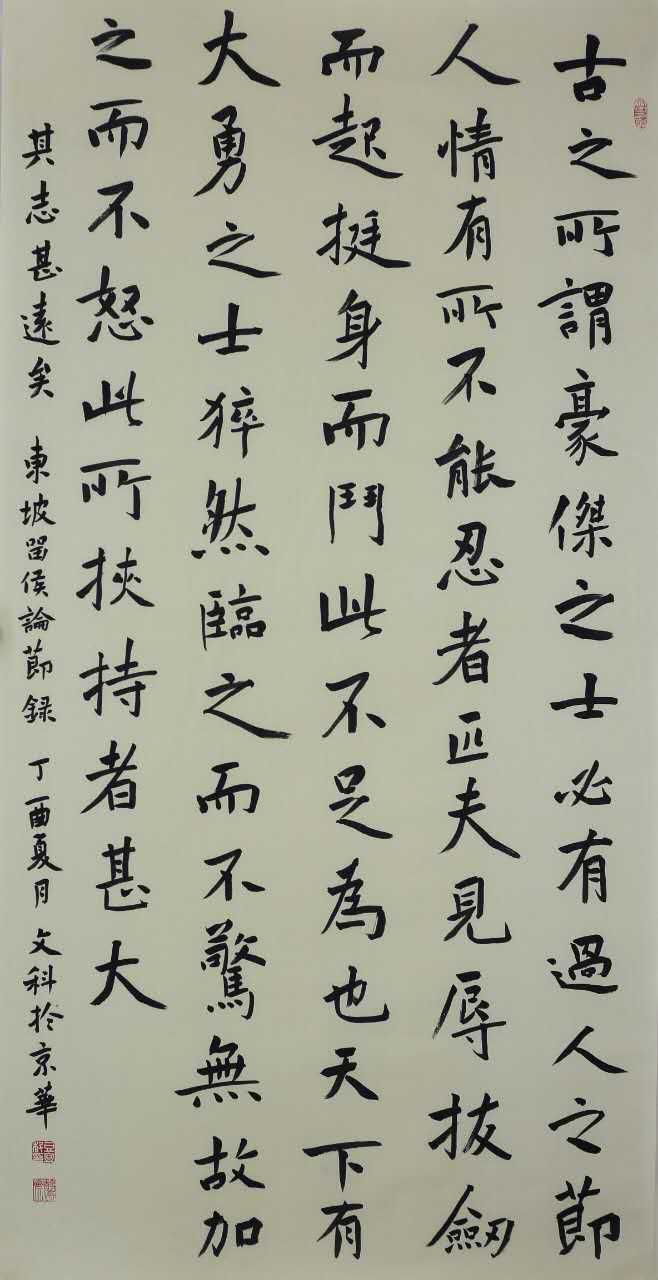 古之所謂豪傑之士必有過人之節
人情有所不能忍者匹夫見辱拔劒
而起挺身而鬥此不足為也天下有
大勇之士猝然臨之而不驚無故加
之而不怒此所挾持者甚大
其志甚遠矣 東坡留侯論節録 丁酉夏月 文科於京華